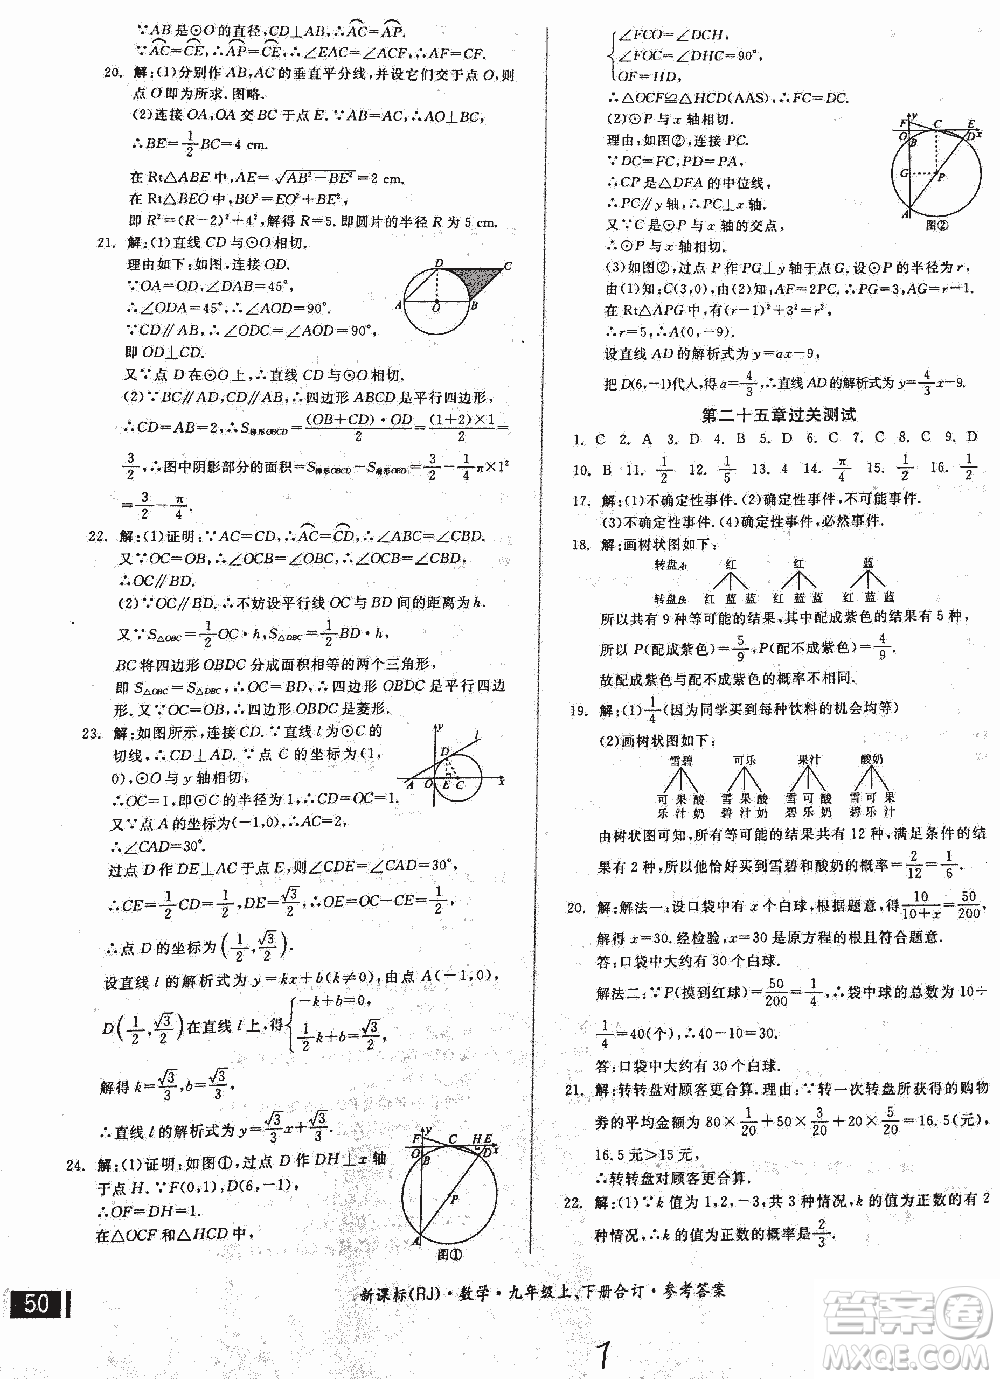 ∵AB是⊙O的直径,CD⊥AB,∴AC=AP.
∵AC=CE,∴AP=CE,∴∠EAC=∠ACF,∴AF=CF.
20. 解:(1)分别作AB,AC的垂直平分线,并设它们交于点O,则
点O即为所求.图略.
(2)连接OA,OA交BC于点E.∵AB=AC,∴AO⊥BC,
∴BE=1/2BC=4 cm.
在Rt△ABE中,AE=√(AB²-BE²)=2 cm.
在Rt△BEO中,BO²=BE²+OE²,
即R²=(R-2)²+4²,解得R=5.即圆片的半径R为5 cm.
21. 解:(1)直线CD与⊙O相切.
理由如下:如图,连接OD.
∵OA=OD,∠DAB=45°,
∴∠ODA=45°,∴∠AOD=90°.
∵CD∥AB,∴∠ODC=∠AOD=90°,
即OD⊥CD.
又∵点D在⊙O上,∴直线CD与⊙O相切.
(2)∵BC∥AD,CD∥AB,∴四边形ABCD是平行四边形,
∴CD=AB=2,∴S梯形OBCD=(OB+CD)·OD/2=(1+2)×1/2=
3/2,∴图中阴影部分的面积=S梯形OBCD-S扇形OBD=3/2-1/4×π×1²
=3/2-π/4.
22. 解:(1)证明:∵AC=CD,∴AC=CD,∴∠ABC=∠CBD.
又∵OC=OB,∴∠OCB=∠OBC,∴∠OCB=∠CBD,
∴OC∥BD.
(2)∵OC∥BD,∴不妨设平行线OC与BD间的距离为h.
又∵S△OBC=1/2OC·h,S△DBC=1/2BD·h,
BC将四边形OBDC分成面积相等的两个三角形,
即S△OBC=S△DBC,∴OC=BD,∴四边形OBDC是平行四边
形.又∵OC=OB,∴四边形OBDC是菱形.
23. 解:如图所示,连接CD.∵直线l为⊙C的
切线,∴CD⊥AD.∵点C的坐标为(1,
0),⊙C与y轴相切,
∴OC=1,即⊙C的半径为1,∴CD=1.
又∵点A的坐标为(-1,0),∴AC=2,
∴∠CAD=30°.
过点D作DE⊥AC于点E,则∠CDE=∠CAD=30°,
∴CE=1/2CD=1/2,DE=√3/2,∴OE=OC-CE=1/2,
∴点D的坐标为(1/2,√3/2).
设直线l的解析式为y=kx+b(k≠0),由点A(-1,0),
D(1/2,√3/2)在直线l上,得{-k+b=0, 1/2k+b=√3/2,
解得k=√3/3,b=√3/3,
∴直线l的解析式为y=√3/3x+√3/3.
24. 解:(1)证明:如图①,过点D作DH⊥x轴
于点H.∵F(0,1),D(6,-1),
∴OF=DH=1.
在△OCF和△HCD中,
图①
{∠FCO=∠DCH,
∠FOC=∠DHC=90°,
OF=HD,
∴△OCF≌△HCD(AAS),∴FC=DC.
(2)⊙P与x轴相切.
理由:如图②,连接PC.
∵DC=FC,PD=PA,
∴CP是△DFA的中位线,
∴PC∥y轴,∴PC⊥x轴.
又∵C是⊙P与x轴的交点,
∴⊙P与x轴相切.
图②
(3)如图②,过点P作PG⊥y轴于点G,设⊙P的半径为r,
由(1)知,C(3,0),由(2)知,AF=2PC,∴PG=3,AG=r-1.
在Rt△APG中,有(r-1)²+3²=r²,
∴r=5,∴A(0,-9).
设直线AD的解析式为y=ax-9,
把D(6,-1)代入,得a=4/3,∴直线AD的解析式为y=4/3x-9.
第二十五章过关测试
1. C 2. A 3. D 4. D 5. D 6. B 7. C 8. C 9. D
10. B 11. 1/2 12. 2/5 13. 1/2 14. π/4 15. 1/2 16. 1/2
17. 解:(1)不确定性事件.(2)确定性事件,不可能事件.
(3)不确定性事件.(4)确定性事件,必然事件.
18. 解:画树状图如下:
转盘A 红 红 蓝
转盘B 红 蓝 蓝 红 蓝 蓝 红 蓝 蓝
所以共有9种等可能的结果,其中配成紫色的结果有5种,
所以P(配成紫色)=5/9,P(配不成紫色)=4/9.
故配成紫色与配不成紫色的概率不相等.
19. 解:(1)1/4(因为同学买到每种饮料的机会均等)
(2)画树状图如下:
雪碧 可乐 果汁 酸奶
可 果 酸 雪 果 酸 雪 可 酸 雪 可 果
乐 汁 奶 碧 汁 奶 碧 乐 奶 碧 乐 汁
由树状图可知,所有等可能的结果共有12种,满足条件的结
果有2种,所以他恰好买到雪碧和酸奶的概率=2/12=1/6.
20. 解:解法一:设口袋中有x个白球.根据题意,得10/(10+x)=50/200,
解得x=30.经检验,x=30是原方程的根且符合题意.
答:口袋中大约有30个白球.
解法二:∵P(摸到红球)=50/200=1/4,∴袋中球的总数为10÷
1/4=40(个),∴40-10=30(个).
答:口袋中大约有30个白球.
21. 解:转转盘对顾客更合算.理由:∵转一次转盘所获得的购物
券的平均金额为80×1/20+50×3/20+20×5/20=16.5(元),
16.5元>15元,
∴转转盘对顾客更合算.
22. 解:(1)∵k值为1,2,-3,共3种情况,k的值为正数的有2
种情况,∴k的值为正数的概率为2/3.
50
新课标(RJ)·数学·九年级上、下册合订·参考答案
7
答案圈
MXQE.COM